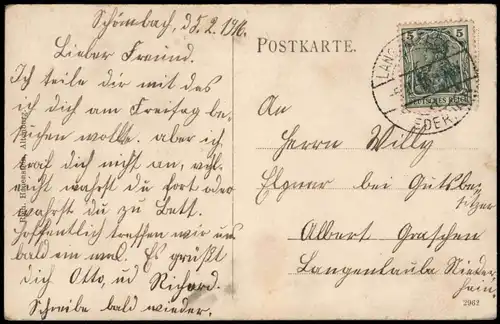 Schömbach, d 5.2.1910.
Lieber Freund.
Ich teile dir mit das
ich dich am Freitag be-
suchen wollte. aber ich
traf dich nicht an, vll
nicht wahrst du fort oder
wahrst du zu Bett.
Hoffentlich treffen wir uns
bald ein mal. Es grüßt
dich Otto, ud Richard.
Schreibe bald wieder.
POSTKARTE.
5 5
DEUTSCHES REICH
LANG
NIEDER
An
Herrn Willy
Elzner bei Gutsbe-
sitzer
Albert Graschen
Langenleuba Nieder
hain,
2962
Altenburg